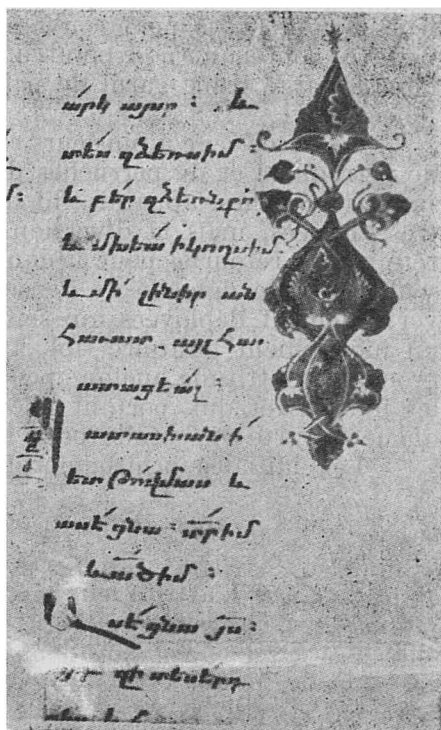 ա՛րկ այսր ։ և
տե՛ս զձեռսիմ ։
և բե՛ր զձեռնքո
և մխեա՛ իկողսիմ
և մի՛ լինիր ան
հաւատ . այլ հաւ
ատացեա՛լ ։
ատասխանի՛
ետ Թովմաս և
ասէ՛ ցնա ։ տ̅ր իմ
և ա̅ծ իմ ։
Ասէ՛ ցնա յ̅ս ։
զի տեսերդ